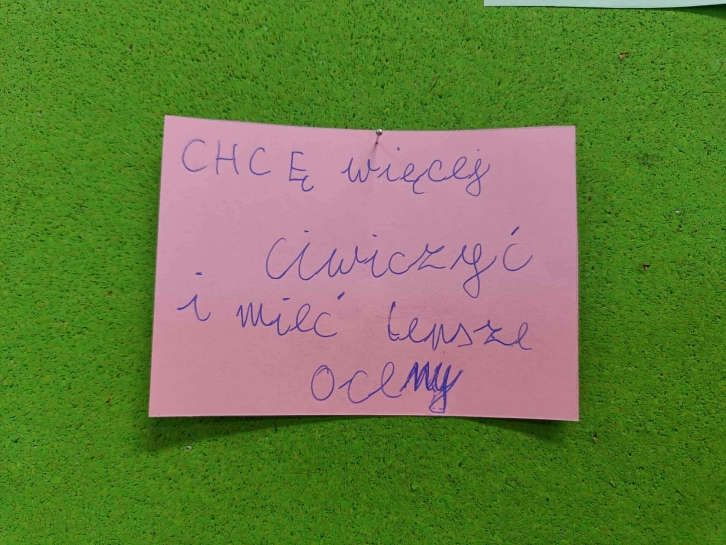 CHCĘ więcej
ciwiczyć
i mieć lepsze
oceny